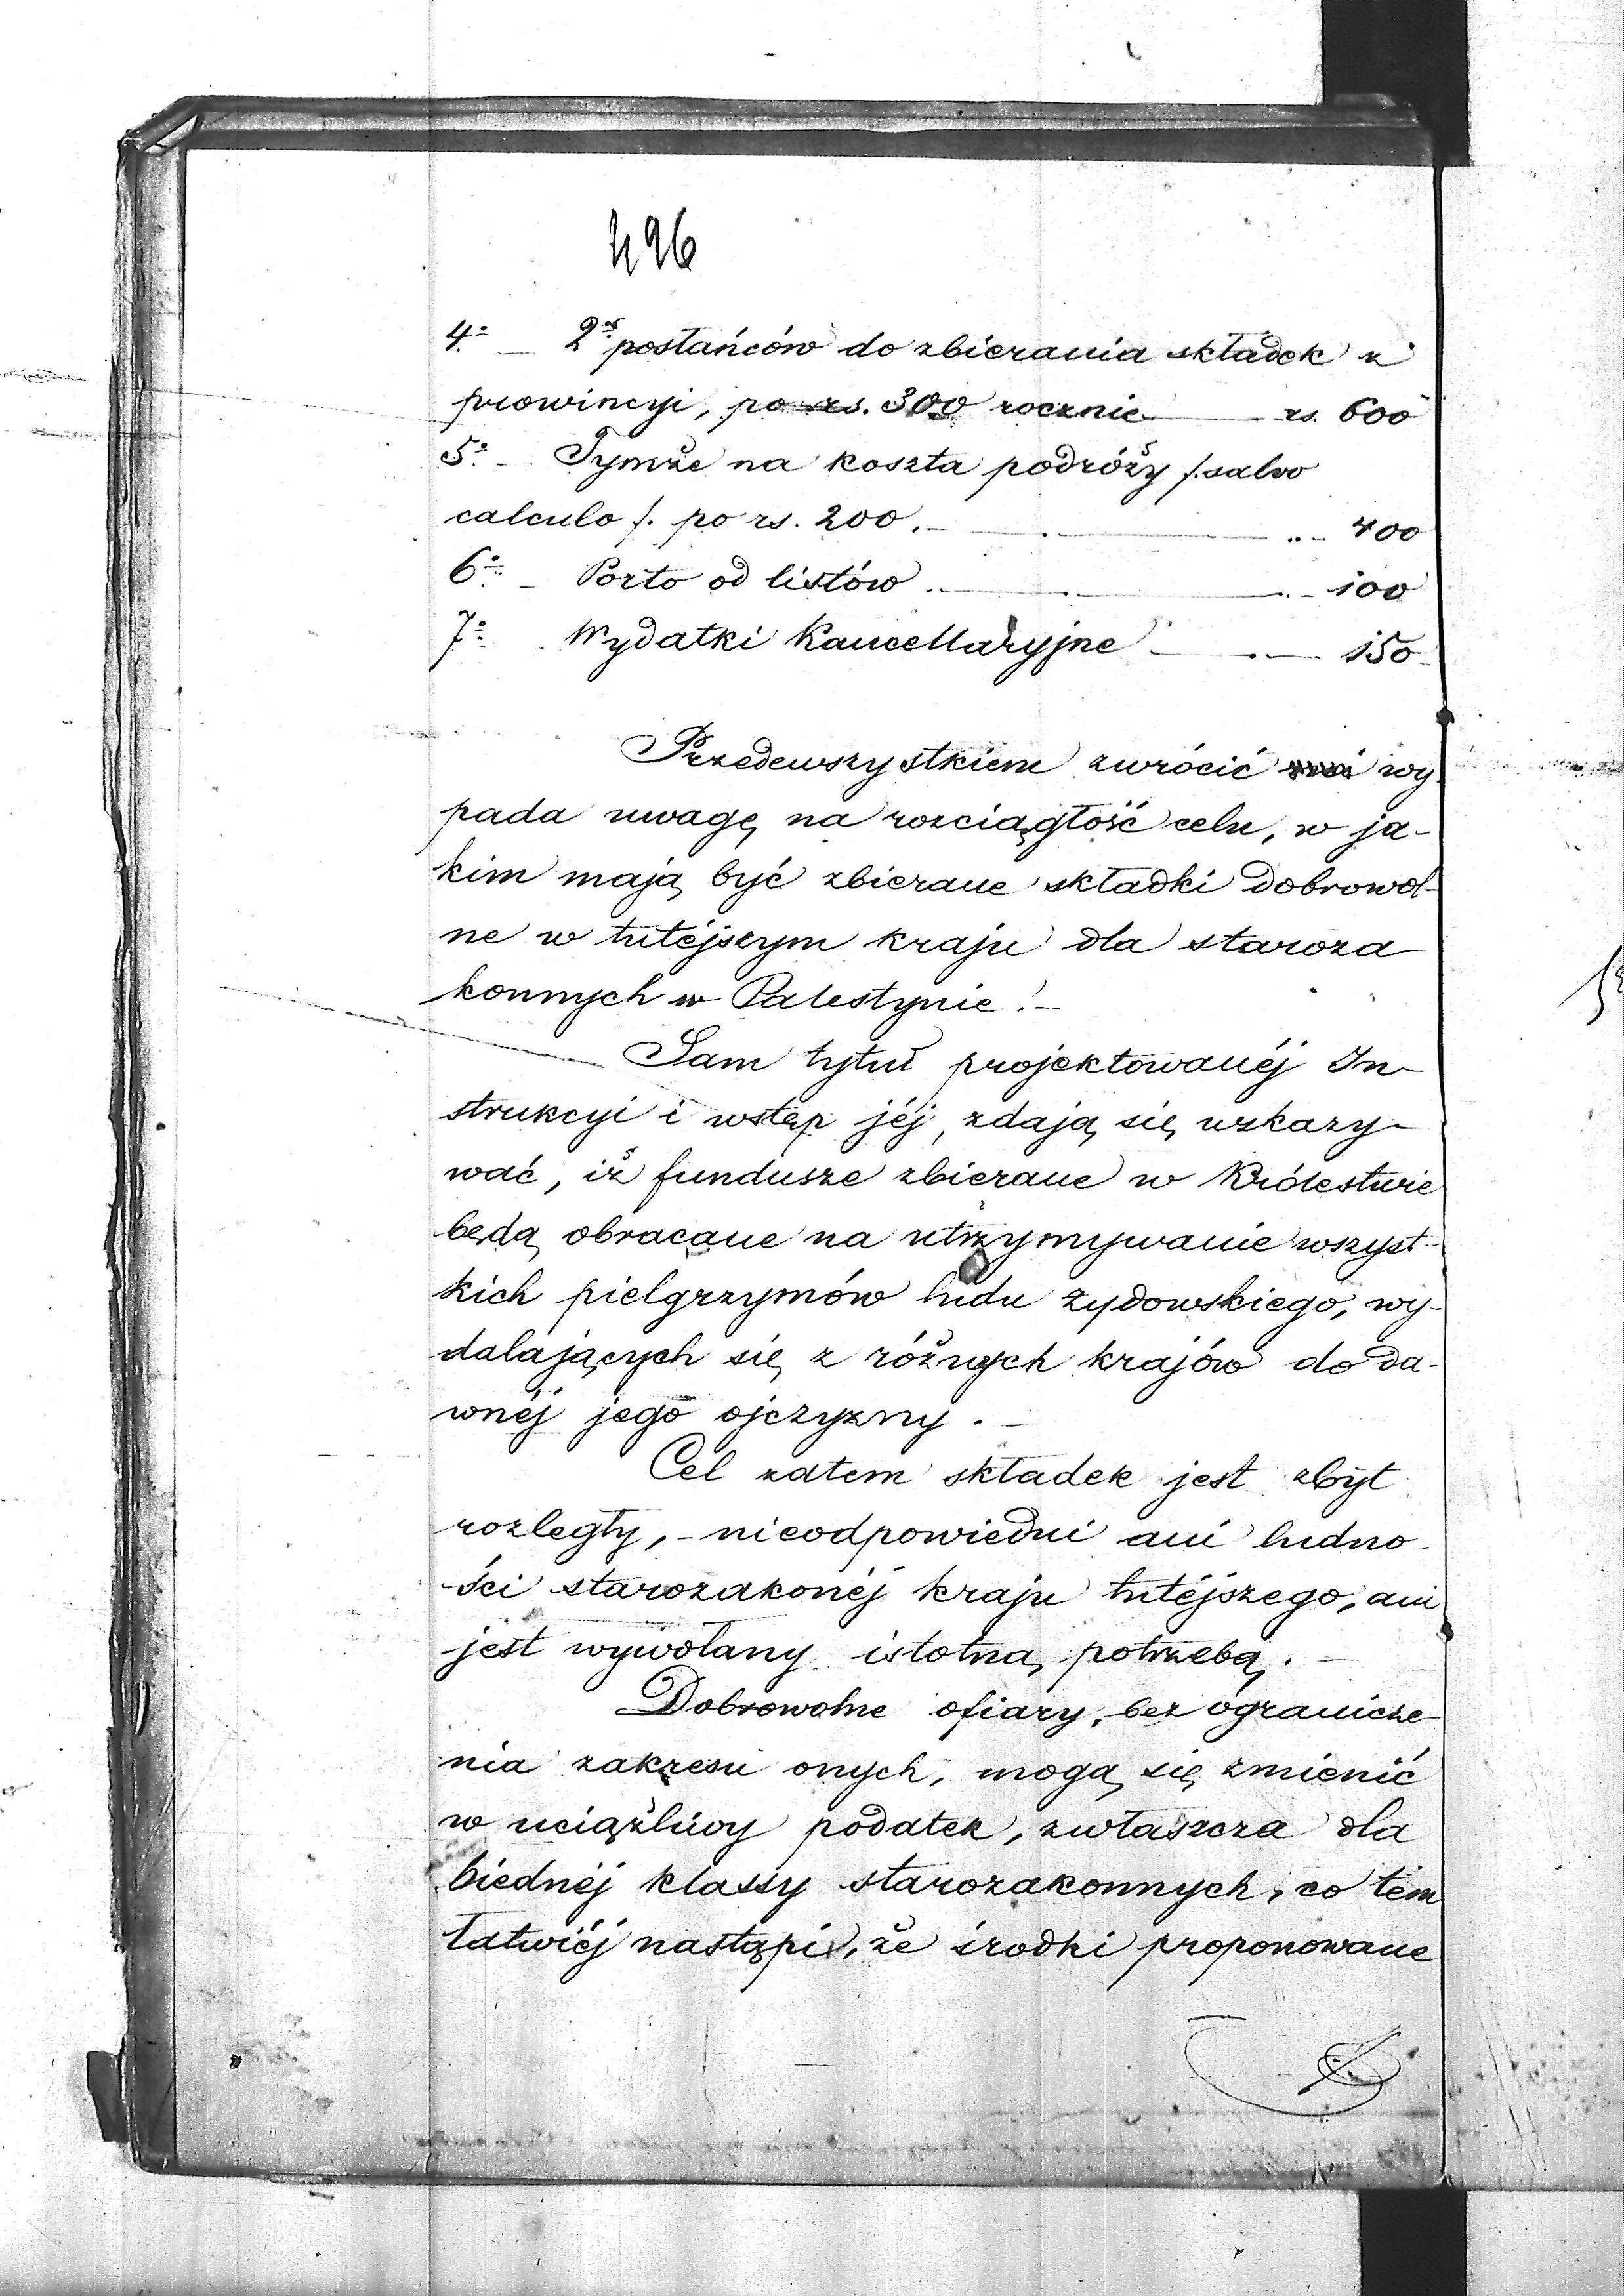 496
4.º _ 2.ch posłańców do zbierania składek z
prowincyi, po rs. 300 rocznie rs. 600
5.º _ Tymże na koszta podróży /.salvo
calculo /. po rs. 200. " 400
6.º _ Porto od listów " 100
7.º Wydatki Kancellaryjne " 150
Przedewszystkiem zwrócić wy
pada uwagę na rozciągłość celu, w ja-
kim mają być zbierane składki dobrowol-
ne w tutéjszym kraju dla staroza
konnych w Palestynie!
Sam tytuł projektowanéj In-
strukcyi i wstęp jéj, zdają się wskazy-
wać, iż fundusze zbierane w Królestwie
będą obracane na utrzymywanie wszyst-
kich pielgrzymów ludu żydowskiego, wy-
dalających się z różnych krajów do da-
wnéj jego ojczyzny. _
Cel zatem składek jest zbyt
rozległy, - nieodpowiedni ani ludno-
ści starozakonéj kraju tutéjszego, ani
jest wywołany istotną potrzebą. _
Dobrowolne ofiary, bez ogranicze
nia zakresu onych, mogą się zmienić
w uciążliwy podatek, zwłaszcza dla
biednéj klassy starozakonnych, co tém
łatwiéj nastąpi, że środki proponowane